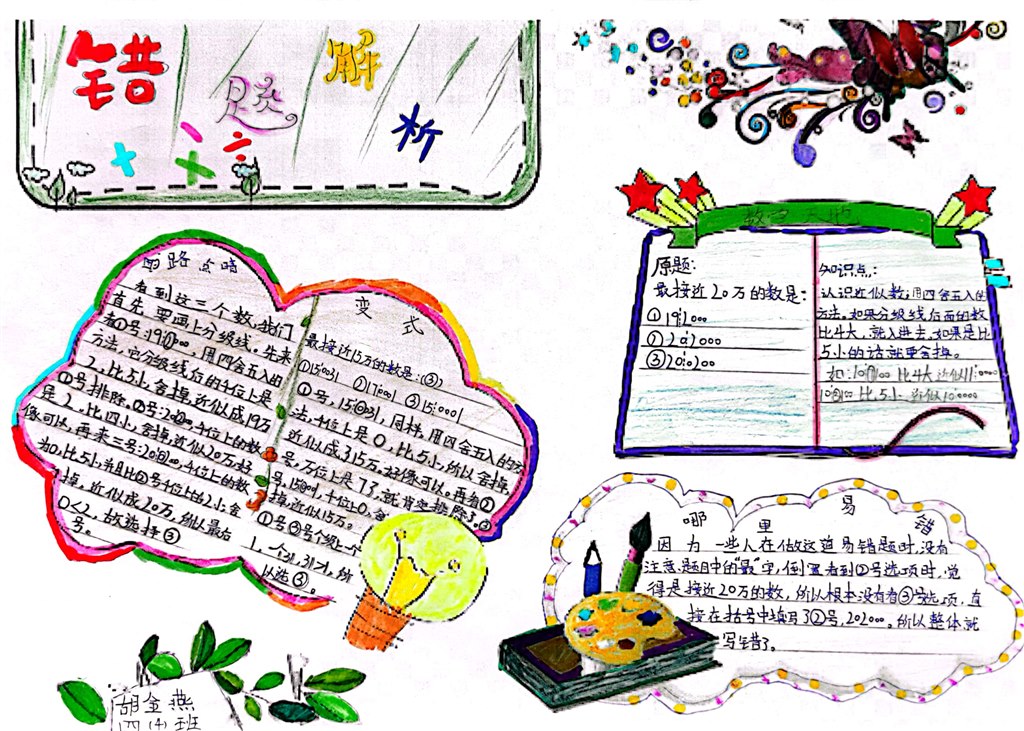 错
题
解
析
数口天地
原题:
最接近20万的数是:
①192000
②202000
③200200
知识点:
认识近似数:用四舍五入的
方法。如果分级线后面的数
比4大,就入进去,如果是比
5小的话就要舍掉。
如:
比4大近似
比5小近似
思路点晴
看到这三个数,我们
首先要画上分级线。先来
看①号:
用四舍五入的
方法,它分级线后的千位上是
2,比5小,舍掉,近似成19万
①号排除。②号:
千位上的数
是2,比四小,舍掉,近似20万好
像可以,再来三号:
千位上的数
为0,比5小,并且比②号千位上的2小,舍
掉,近似成20万,所以最后
0<2。故选择③
号。
变式
最接近15万的数是:(③)
①15 31 ②17 1 ③15 1
①号,
同样,用四舍五入的方
法,千位上是0,比5小,所以舍掉,
近似成15万。好像可以。再看②
号,万位上是7了,就肯定排除了。③
号,
千位上0,舍
掉,近似15万。
①号③号个级上一个
1,一个31,31>1,所
以选③。
哪里易错
因为一些人在做这道易错题时,没有
注意题目中的“最”字,倒置看到②号选项时,觉
得是接近20万的数,所以根本没有看③号选项,直
接在括号中填写了②号,202000。所以整体就
写错了。
胡金燕
四(4)班